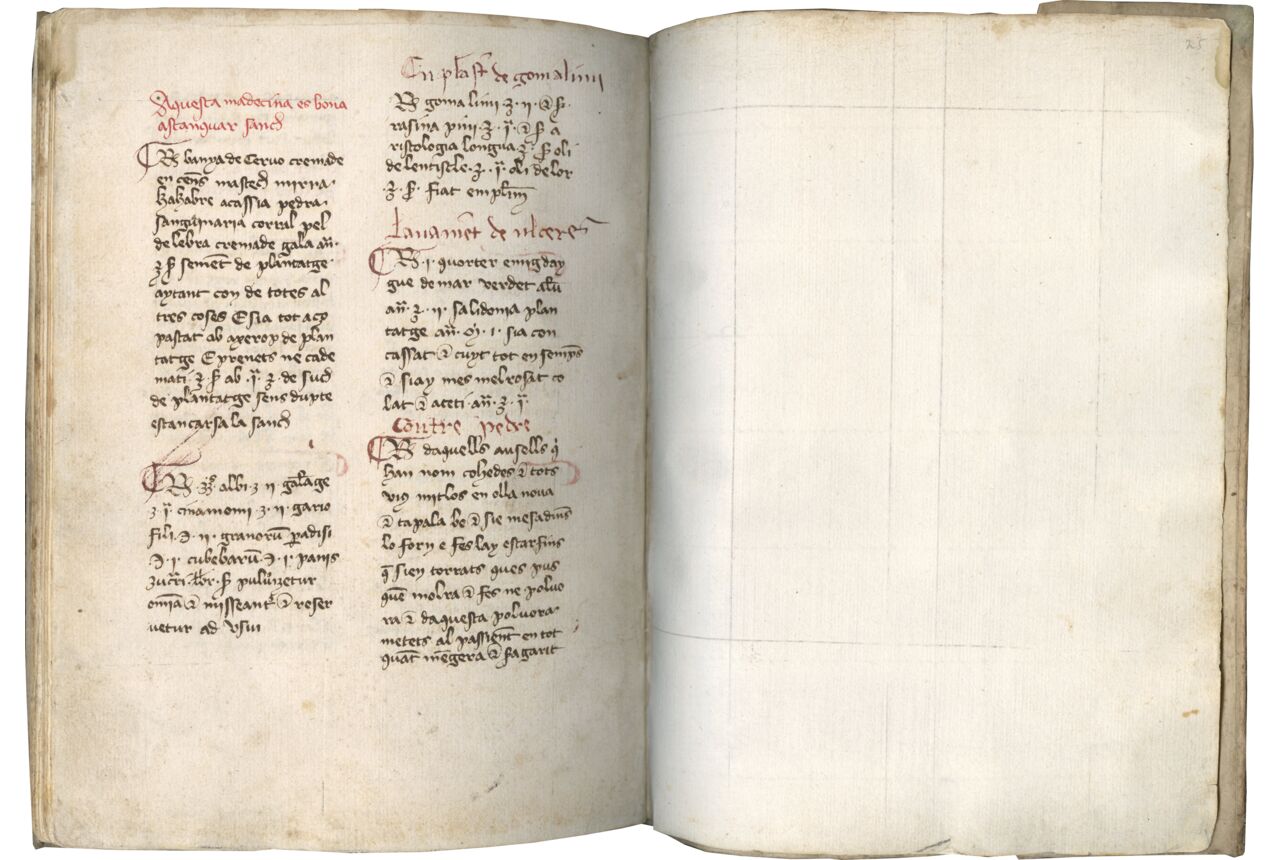 Aquesta madecina es bona
astanquar sanch
℞ banya de Cervo cremade
en cens mastech mirra
acassia pedra
sanguinaria corral pel
de lebra cremade gala añ.
ʒ ß sement de plantatge
aytant con de totes al
tres coses E sia tot aço
pastat ab axerop de plan
tatge E prenets ne cade
mati ʒ ß ab .ı̈. ʒ de such
de plantatge sens dupte
estancarsa la sanch
℞ albi ʒ ii galãge
ʒ ı̈ cinamomi ʒ ii gario
fili ℈ ii granorũ padisi
℈ i cubebarũ ℈ i panis
ß pulvizetur
omĩa et misseant et reser
vetur ad usui
En plast de goma limi
℞ goma limi ʒ ii et ß
rasina pini ʒ ı̈ et ß a
ristologia longua ʒ ß oli
de lentiscle ʒ ı̈ oli de lor
ʒ ß fiat emplm
Lavament de ulceres
℞ i quorter emig day
gue de mar verdet alũ
añ ʒ ii salidonia plan
tatge añ m̃ i sia con
cassat et cuyt tot en semps
et siay mes mel rosat co
lat et aceti añ ʒ ı̈
Contre pedre
℞ daquells ausells q̃
han nom cohedes et tots
vius mitlos en olla nova
et tapala be et sie mesa dins
lo forn e fes lay estar fins
q̃ sien torrats ques pus
quẽ molra et fes ne polvo
ra et daquesta polvora
metets al passient en tot
quãt mẽgera et sa garit
25